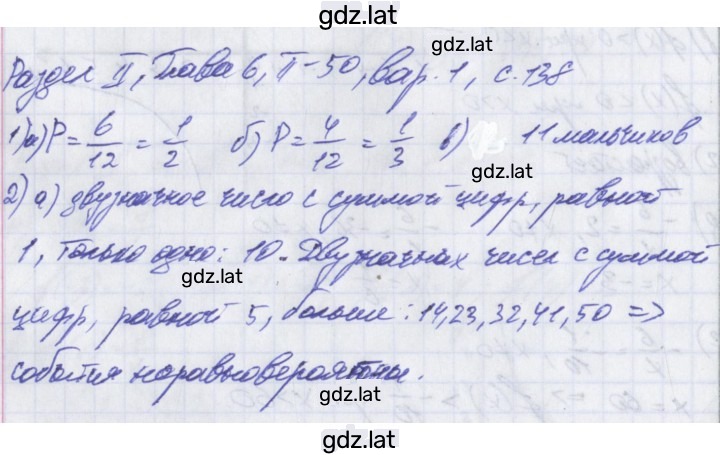 gdz.lat
Раздел II, Глава 6, П-50, вар. 1, с. 138
gdz.lat
1) а) P = 6/12 = 1/2 б) P = 4/12 = 1/3 в) 11 мальчиков
2) а) двузначное число с суммой цифр, равной
1, только одно: 10. Двузначных чисел с суммой
gdz.lat
цифр, равной 5, больше: 14, 23, 32, 41, 50 =>
события неравновероятны.
gdz.lat
gdz.lat